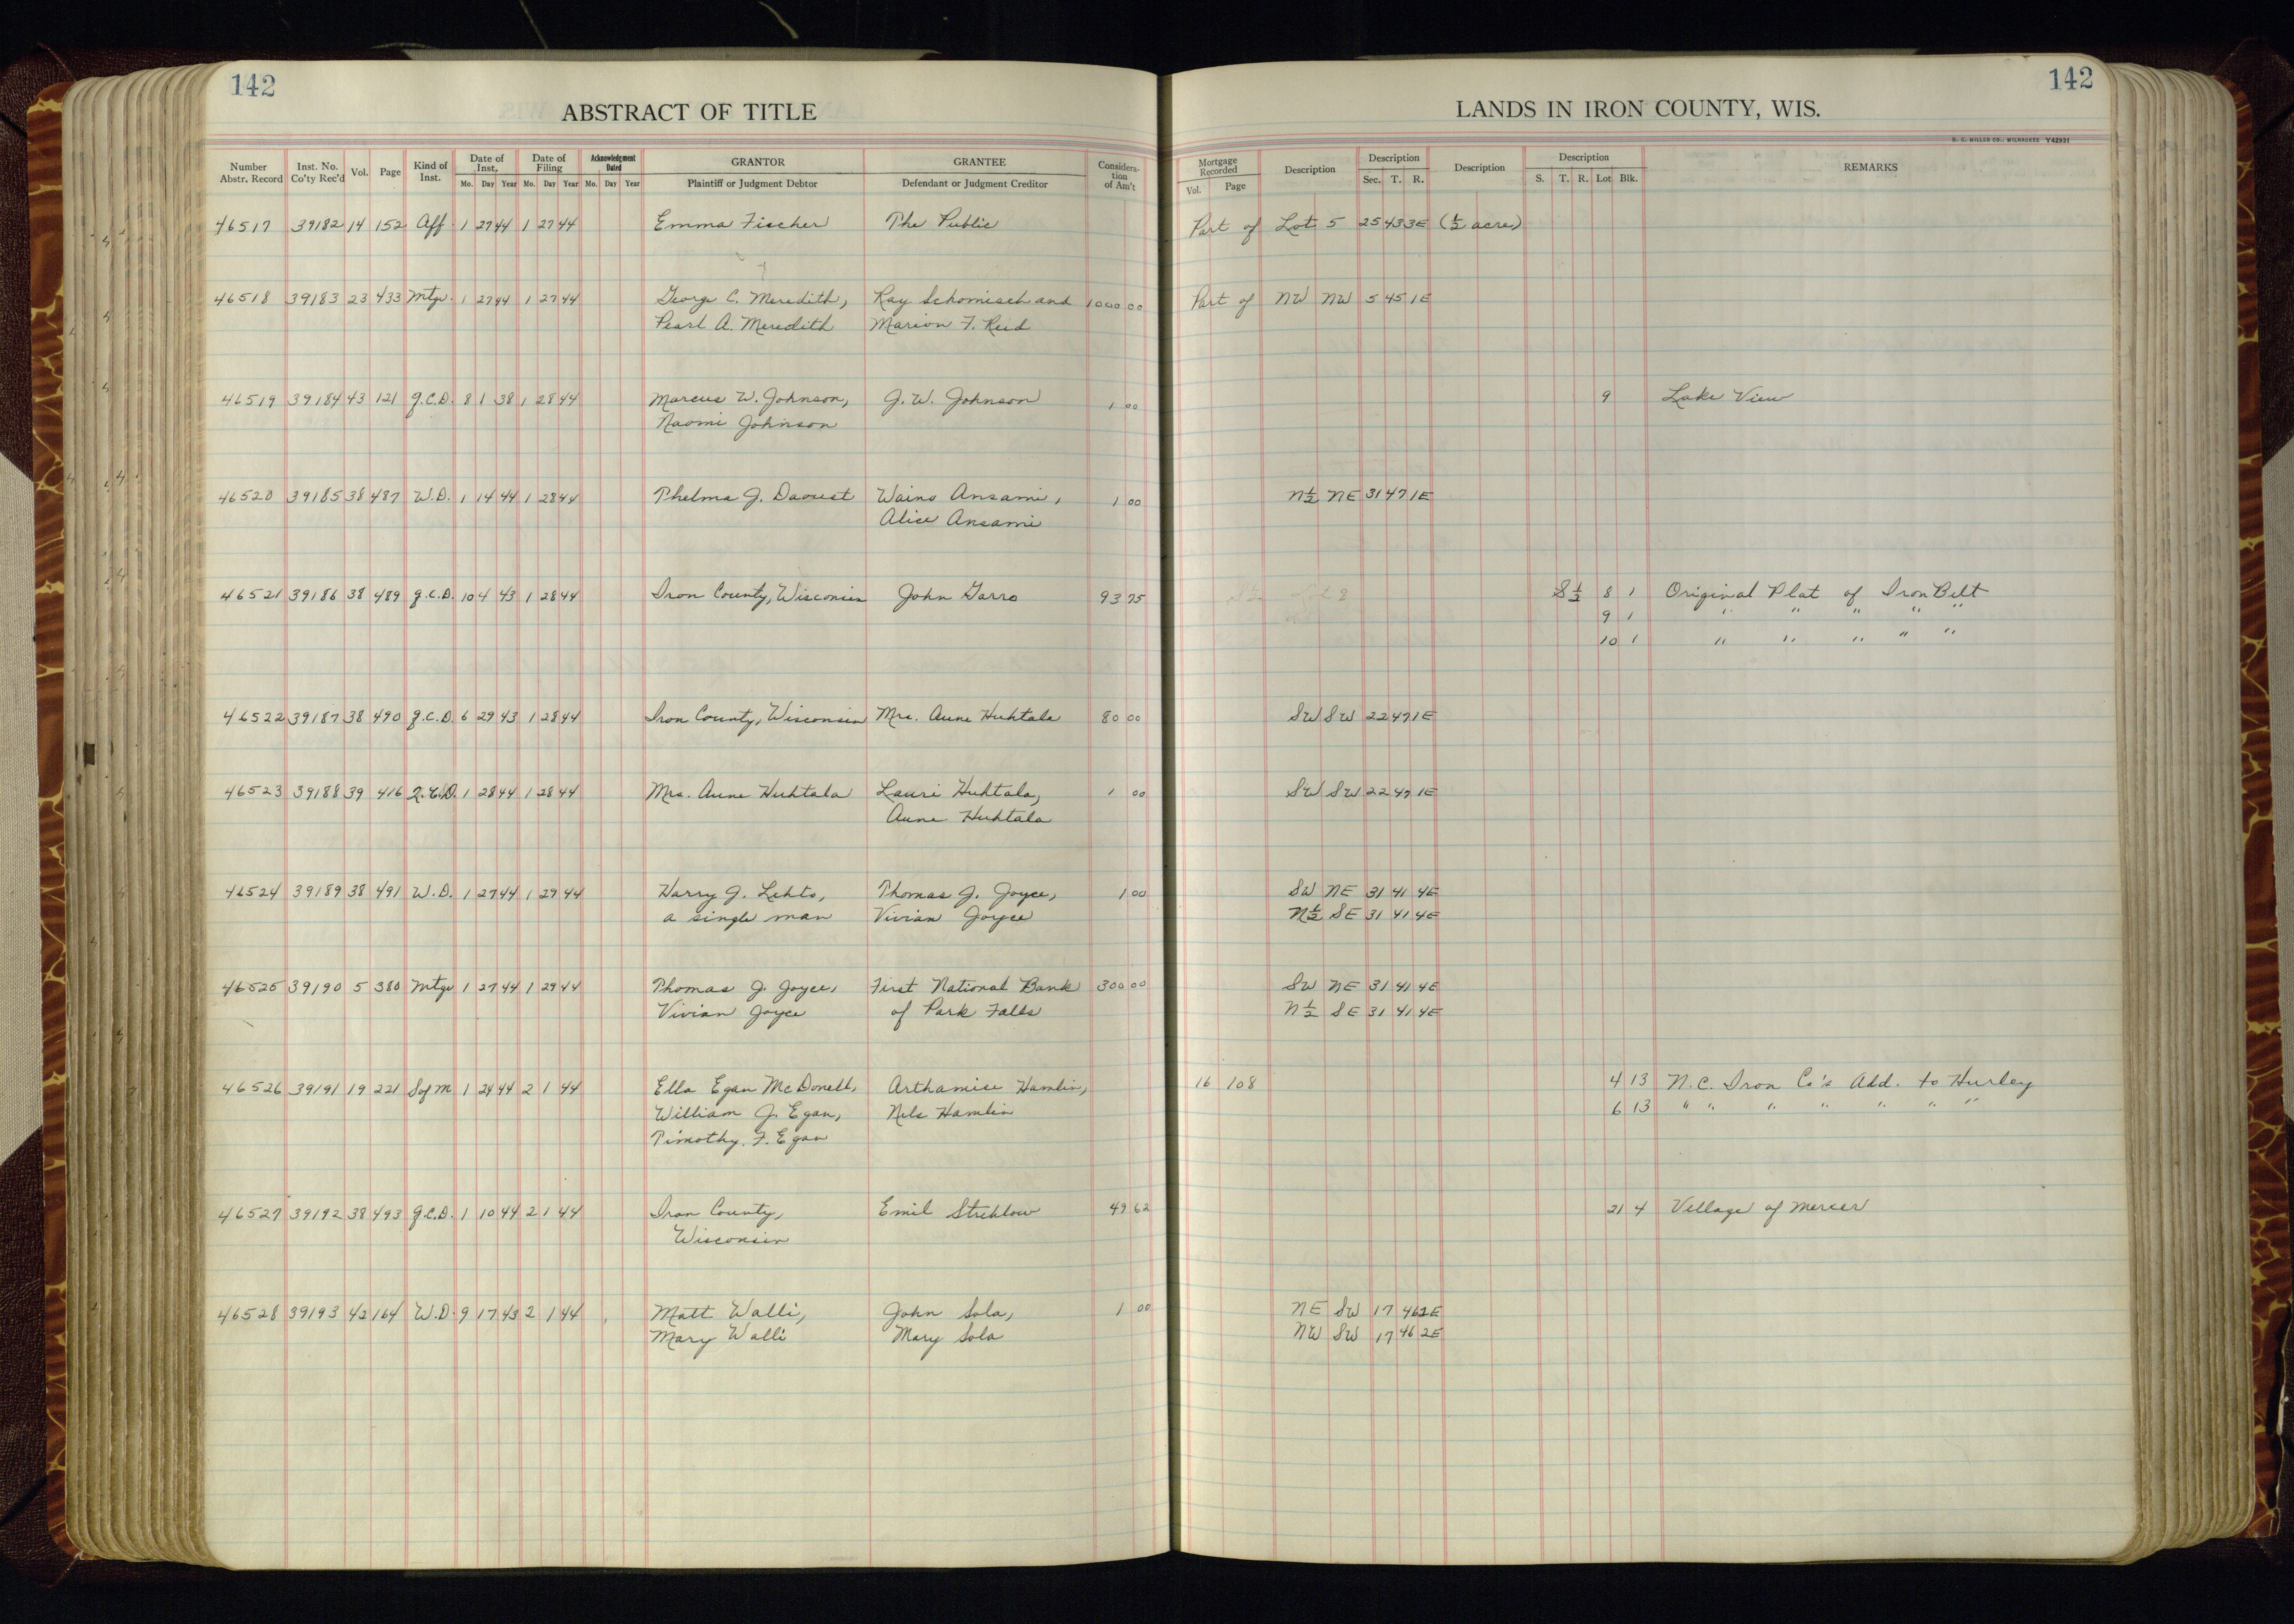 142
142
ABSTRACT OF TITLE
LANDS IN IRON COUNTY, WIS.
H. C. MILLER CO., MILWAUKEE Y42931
Number Abstr. Record Inst. No. Co'ty Rec'd Vol. Page Kind of Inst. Date of Inst. Mo. Day Year Date of Filing Mo. Day Year Acknowledgment Dated Mo. Day Year GRANTOR Plaintiff or Judgment Debtor GRANTEE Defendant or Judgment Creditor Considera-tion of Am't Mortgage Recorded Vol. Page Description Description Sec. T. R. Description Description S. T. R. Lot Blk. REMARKS
46517 39182 14 152 Aff. 1 27 44 1 27 44 Emma Fischer The Public Part of Lot 5 25 43 3E (½ acre)
46518 39183 23 433 Mtge. 1 27 44 1 27 44 George C. Meredith, Ray Schomisch and 1000 00 Part of NW NW 5 45 1E
Pearl A. Meredith Marion F. Reid
46519 39184 43 121 Q.C.D. 8 1 38 1 28 44 Marcus W. Johnson, J. W. Johnson 1 00 9 Lake View
Naomi Johnson
46520 39185 38 487 W.D. 1 14 44 1 28 44 Thelma J. Daoust Waino Ansami, 1 00 N½ NE 31 47 1E
Alice Ansami
46521 39186 38 489 Q.C.D. 10 4 43 1 28 44 Iron County, Wisconsin John Garro 93 75 S½ 8 1 Original Plat of Iron Belt
9 1 " " " " "
10 1 " " " " "
46522 39187 38 490 Q.C.D. 6 29 43 1 28 44 Iron County, Wisconsin Mrs. Aune Huhtala 80 00 SW SW 22 47 1E
46523 39188 39 416 Q.C.D. 1 28 44 1 28 44 Mrs. Aune Huhtala Lauri Huhtala, 1 00 SW SW 22 47 1E
Aune Huhtala
46524 39189 38 491 W.D. 1 27 44 1 29 44 Harry J. Lehto, Thomas J. Joyce, 1 00 SW NE 31 41 4E
a single man Vivian Joyce N½ SE 31 41 4E
46525 39190 5 380 Mtge 1 27 44 1 29 44 Thomas J. Joyce, First National Bank 300 00 SW NE 31 41 4E
Vivian Joyce of Park Falls N½ SE 31 41 4E
46526 39191 19 221 S of M 1 24 44 2 1 44 Ella Egan McDonell, Arthamise Hamlin, 16 108 4 13 N.C. Iron Co's Add. to Hurley
William J. Egan, Nels Hamlin 6 13 " " " " " " "
Timothy F. Egan
46527 39192 38 493 Q.C.D. 1 10 44 2 1 44 Iron County, Emil Streblow 49 62 21 4 Village of Mercer
Wisconsin
46528 39193 42 164 W.D. 9 17 43 2 1 44 Matt Walli, John Sola, 1 00 NE SW 17 46 2E
Mary Walli Mary Sola NW SW 17 46 2E